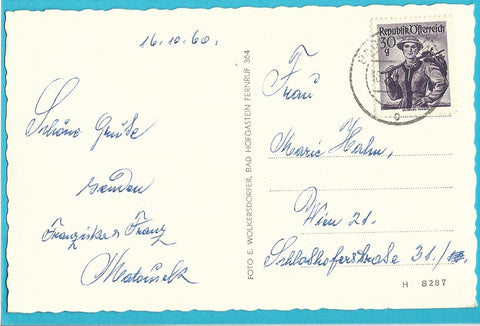 16.10.60.
Schöne Grüße
senden
Franziska u. Franz
Matouschek
FOTO E. WOLKERSDORFER, BAD HOFGASTEIN FERNRUF 364
Republik Österreich
30
g
Frau
Marie Hahn,
Wien 21.
Schloßhoferstraße 31/
H 8287